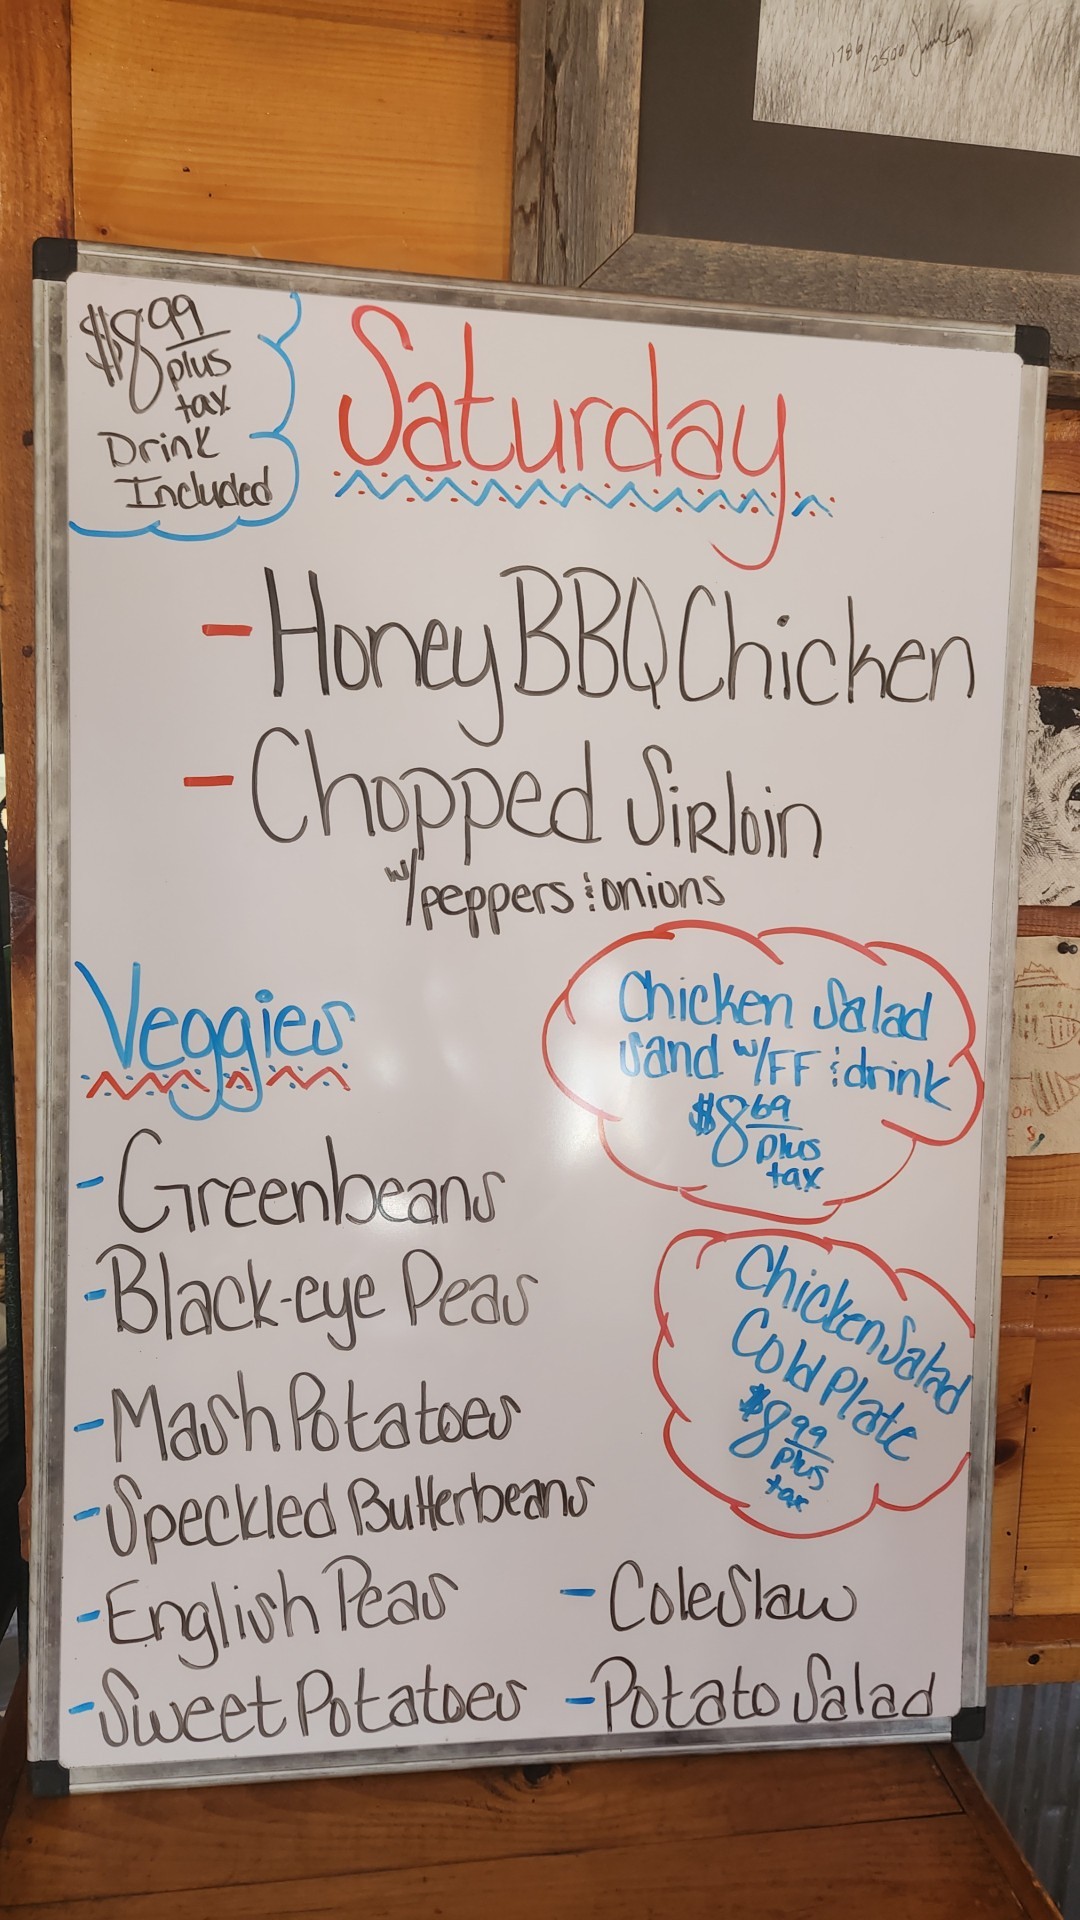 1786/2500
$8.99
plus
tax
Drink
Included
Saturday
- Honey BBQ Chicken
- Chopped Sirloin
w/peppers & onions
Chicken Salad
Sand w/FF & drink
$8.69
plus
tax
Chicken Salad
Cold Plate
$8.99
plus
tax
Veggies
- Greenbeans
- Black-eye Peas
- Mash Potatoes
- Speckled Butterbeans
- English Peas
- Sweet Potatoes
- Coleslaw
- Potato Salad